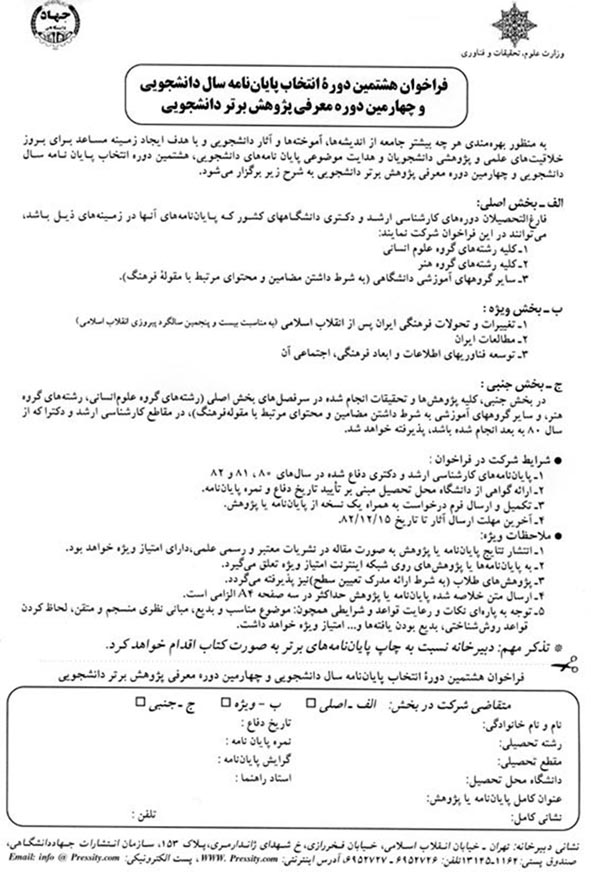 جهاد
دانشگاهی
وزارت علوم، تحقیقات و فناوری
فراخوان هشتمین دورهٔ انتخاب پایان‌نامه سال دانشجویی
و چهارمین دوره معرفی پژوهش برتر دانشجویی
به منظور بهره‌مندی هر چه بیشتر جامعه از اندیشه‌ها، آموخته‌ها و آثار دانشجویی و با هدف ایجاد زمینه مساعد برای بروز
خلاقیت‌های علمی و پژوهشی دانشجویان و هدایت موضوعی پایان نامه‌های دانشجویی، هشتمین دوره انتخاب پایان نامه سال
دانشجویی و چهارمین دوره معرفی پژوهش برتر دانشجویی به شرح زیر برگزار می‌شود.
الف ـ بخش اصلی:
فارغ‌التحصیلان دوره‌های کارشناسی ارشد و دکتری دانشگاههای کشور که پایان‌نامه‌های آنها در زمینه‌های ذیل باشد،
می‌توانند در این فراخوان شرکت نمایند:
۱ـ کلیه رشته‌های گروه علوم انسانی
۲ـ کلیه رشته‌های گروه هنر
۳ـ سایر گروههای آموزشی دانشگاهی (به شرط داشتن مضامین و محتوای مرتبط با مقولهٔ فرهنگ).
ب ـ بخش ویژه :
۱ـ تغییرات و تحولات فرهنگی ایران پس از انقلاب اسلامی (به مناسبت بیست و پنجمین سالگرد پیروزی انقلاب اسلامی)
۲ـ مطالعات ایران
۳ـ توسعه فناوریهای اطلاعات و ابعاد فرهنگی، اجتماعی آن
ج ـ بخش جنبی :
در بخش جنبی، کلیه پژوهش‌ها و تحقیقات انجام شده در سرفصل‌های بخش اصلی (رشته‌های گروه علوم‌انسانی، رشته‌های گروه
هنر، و سایر گروههای آموزشی به شرط داشتن مضامین و محتوای مرتبط با مقوله‌فرهنگ)، در مقاطع کارشناسی ارشد و دکترا که از
سال ۸۰ به بعد انجام شده باشد، پذیرفته خواهد شد.
● شرایط شرکت در فراخوان :
۱ـ پایان‌نامه‌های کارشناسی ارشد و دکتری دفاع شده در سال‌های ۸۰، ۸۱ و ۸۲
۲ـ ارائه گواهی از دانشگاه محل تحصیل مبنی بر تأیید تاریخ دفاع و نمره پایان‌نامه.
۳ـ تکمیل و ارسال فرم درخواست به همراه یک نسخه از پایان‌نامه یا پژوهش.
۴ـ آخرین مهلت ارسال آثار تا تاریخ ۸۲/۱۲/۱۵.
● ملاحظات ویژه:
۱ـ انتشار نتایج پایان‌نامه یا پژوهش به صورت مقاله در نشریات معتبر و رسمی علمی،دارای امتیاز ویژه خواهد بود.
۲ـ به پایان‌نامه‌ها یا پژوهش‌های روی شبکه اینترنت امتیاز ویژه تعلق می‌گیرد.
۳ـ پژوهش‌های طلاب (به شرط ارائه مدرک تعیین سطح)نیز پذیرفته می‌گردد.
۴ـ ارسال متن خلاصه شده پایان‌نامه یا پژوهش حداکثر در سه صفحه A4 الزامی است.
۵ـ توجه به پاره‌ای نکات و رعایت قواعد و شرایطی همچون: موضوع مناسب و بدیع، مبانی نظری منسجم و متقن، لحاظ کردن
قواعد روش‌شناختی، بدیع بودن یافته‌ها و... امتیاز ویژه خواهد داشت.
* تذکر مهم: دبیرخانه نسبت به چاپ پایان‌نامه‌های برتر به صورت کتاب اقدام خواهد کرد.
فراخوان هشتمین دورهٔ انتخاب پایان‌نامه سال دانشجویی و چهارمین دوره معرفی پژوهش برتر دانشجویی
متقاضی شرکت در بخش: الف ـ اصلی □ ب - ویژه □ ج ـ جنبی □
نام و نام خانوادگی: تاریخ دفاع :
رشته تحصیلی: نمره پایان نامه :
مقطع تحصیلی: گرایش پایان‌نامه :
دانشگاه محل تحصیل: استاد راهنما :
عنوان کامل پایان‌نامه یا پژوهش:
نشانی کامل: تلفن :
نشانی دبیرخانه: تهران ـ خیابان انقلاب اسلامی، خیابان فخررازی، خ شهدای ژاندارمری، پلاک ۱۵۳، سازمان انتشارات جهاددانشگاهی،
صندوق پستی: ۱۱۶۴ـ۱۳۱۴۵ تلفن: ۶۹۵۲۷۲۶ ـ ۶۹۵۲۷۲۷، آدرس اینترنتی: WWW. Pressity.com ، پست الکترونیکی: Email: info @ Pressity.com